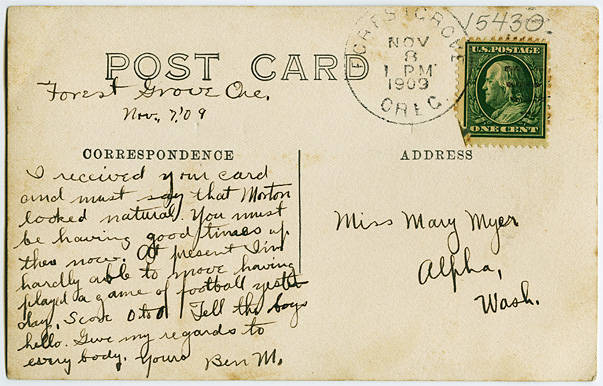 15430
FOREST GROVE
NOV
8
1 PM
1909
OREG.
U.S. POSTAGE
ONE CENT
POST CARD
Forest Grove Ore.
Nov. 7, '09
CORRESPONDENCE
I received your card
and must say that Morton
looked natural. You must
be having good times up
there now. At present I'm
hardly able to move having
played a game of football yester
day, Score 0 to 0 Tell the boys
hello. Give my regards to
every body. Yours Ben M.
ADDRESS
Miss Mary Myer
Alpha,
Wash.